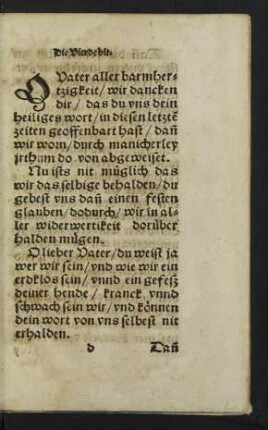 Die Vierde bit.
O Vater aller barmher-
tzigkeit/ wir dancken
dir/ das du vns dein
heiliges wort/ in diesen letztē
zeiten geoffenbart hast/ dañ
wir worn/ durch manicherley
irthum do von abgeweiset.
Nu ists nit müglich das
wir das selbige behalden/ du
gebest vns dañ einen festen
glauben/ dodurch/ wir in al-
ler widerwertikeit dorüber
halden mügen.
O lieber Vater/ du weist ja
wer wir sein/ vnd wie wir ein
erdklos sein/ vnnd ein gefesz
deiner hende/ kranck vnnd
schwach sein wir/ vnd können
dein wort von vns selbest nit
erhalden.
d Dañ